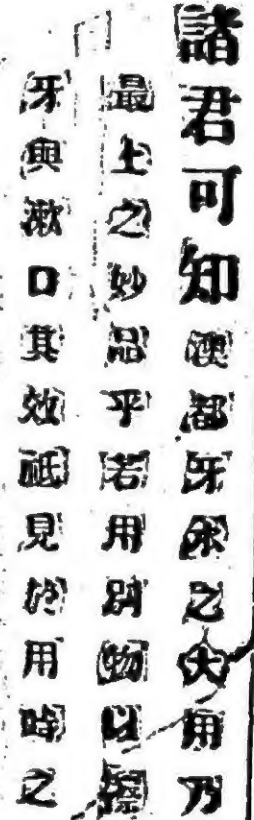 諸君可知澳都牙余之大用乃
最上之妙品乎若用別物以擦
牙與漱口其效祗見於用時之